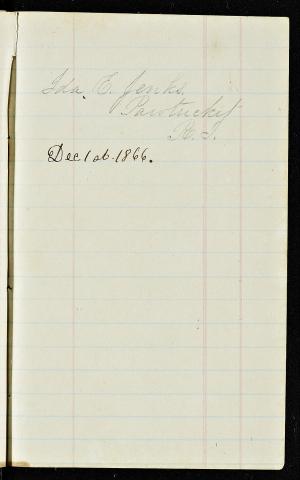 Ida. E. Jenks.
Pawtucket
R. I.
Dec 1st. 1866.